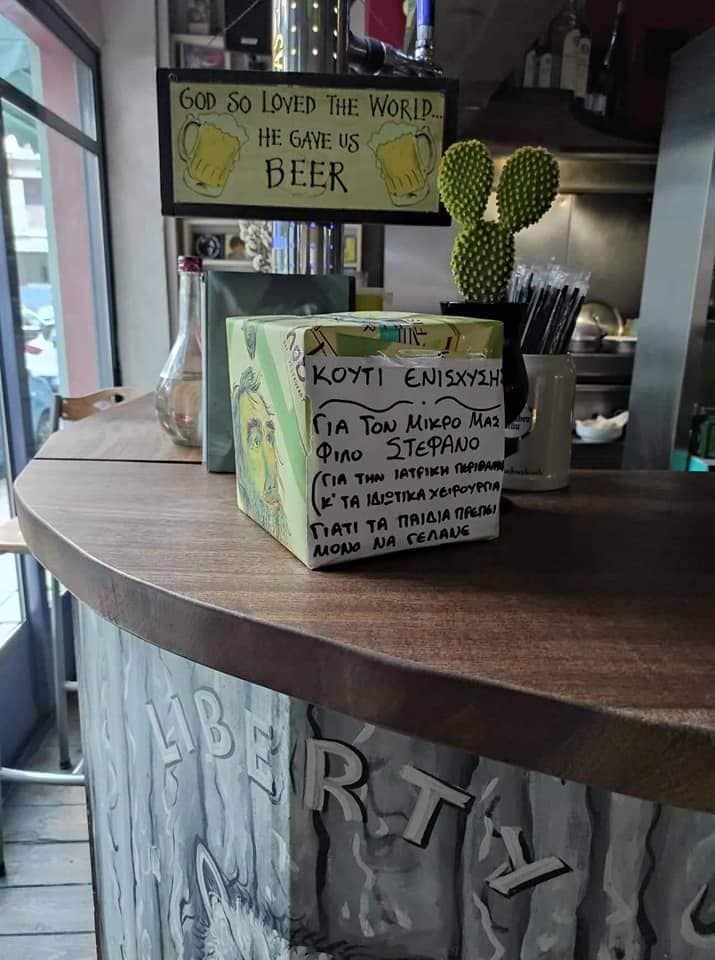 GOD SO LOVED THE WORLD...
HE GAVE US
BEER
ΚΟΥΤΙ ΕΝΙSΧΥΣΗΣ
ΓΙΑ ΤΟΝ ΜΙΚΡΟ ΜΑΣ
ΦΙΛΟ SΤΕΦΑΝΟ
(ΓΙΑ ΤΗΝ ΙΑΤΡΙΚΗ ΠΕΡΙΘΑΛΨΗ
Κ' ΤΑ ΙΔΙΩΤΙΚΑ ΧΕΙΡΟΥΡΓΙΑ
ΓΙΑΤΙ ΤΑ ΠΑΙΔΙΑ ΠΡΕΠΕΙ
ΜΟΝΟ ΝΑ ΓΕΛΑΝΕ
LIBERTY